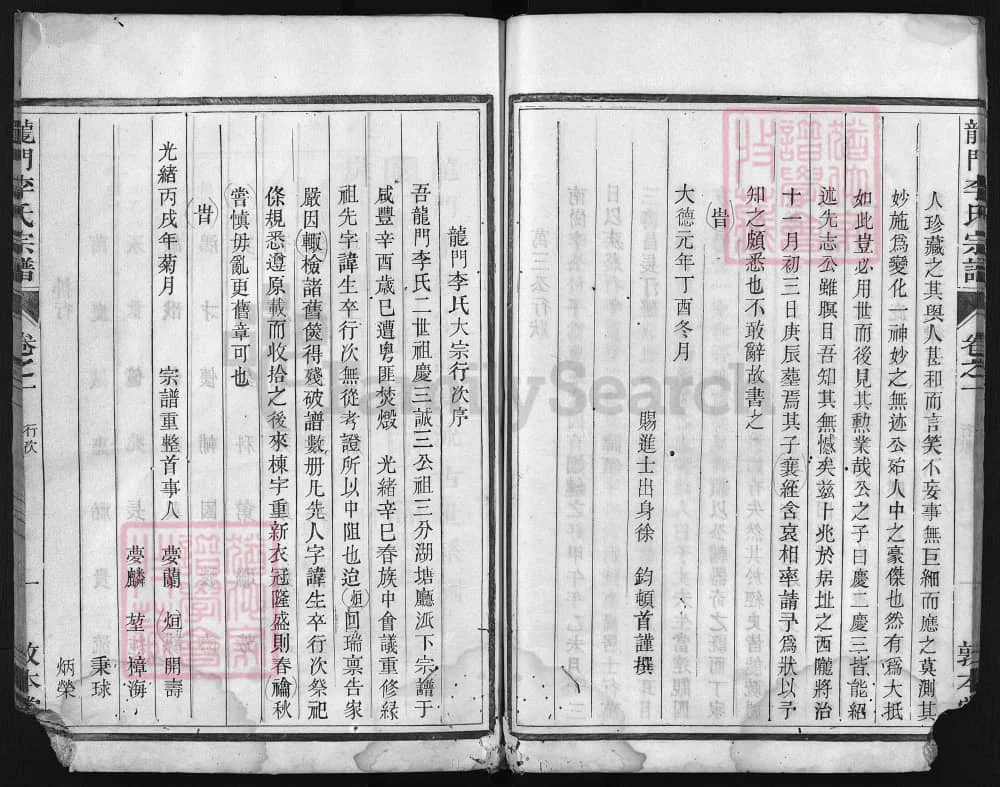 龍門李氏宗譜
卷之一
行狀
敦本堂
人珍藏之其與人甚和而言笑不妄事無巨細而應之莫測其
妙施爲變化之神妙之無迹公殆人中之豪傑也然有爲大抵
如此豈必用世而後見其勲業哉公之子曰慶二慶三皆能紹
述先志公雖瞑目吾知其無憾矣兹卜兆於居址之西隴將治
十一月初三日庚辰塟焉其子衰絰含哀相率請予爲狀以予
知之頗悉也不敢辭故書之
旹
大德元年丁酉冬月
賜進士出身徐 鈞頓首謹撰
龍門李氏大宗行次序
吾龍門李氏二世祖慶三誠三公祖三分湖塘廳泒下宗譜于
咸豐辛酉歲巳遭粤匪焚燬 光緒辛巳春族中會議重修緑
祖先字諱生卒行次無從考證所以中阻也迨烜回瑞禀告家
嚴因輙檢諸舊篋得殘破譜數册凡先人字諱生卒行次祭祀
條規悉遵原載而收拾之後來棟宇重新衣冠隆盛則春禴秋
嘗慎毋亂更舊章可也
旹
光緒丙戌年菊月 宗譜重整首事人 夢蘭 烜 開壽
夢麟 堃 樟海
秉球
炳榮
龍門李氏宗譜
卷之一
行次
一
敦本堂
FamilySearch